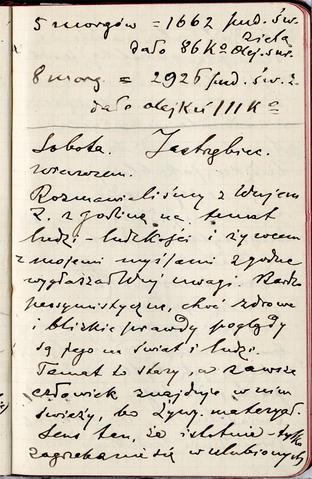 5 morgów = 1662 pud. św.
ziela
dało 86 Ko olej. sur.
8 morg. = 2926 pud. św. z.
dało olejku 111 Ko
Sobota. Jastrzębiec.
wieczorem.
Rozmawialiśmy z Wujem
Z. z godzinę na temat
ludzi – ludzkości i żywcem
z mojemi myślami zgodne
wygłaszał Wuj uwagi. Bardzo
pesymistyczne, choć zdrowe
i blizkie prawdy poglądy
są jego na świat i ludzi.
Temat to stary, a zawsze
człowiek znajduje w nim
świeży, bo żywy materyał.
Sens ten, że istotnie – tylko
zagrzebanie się w ulubionych